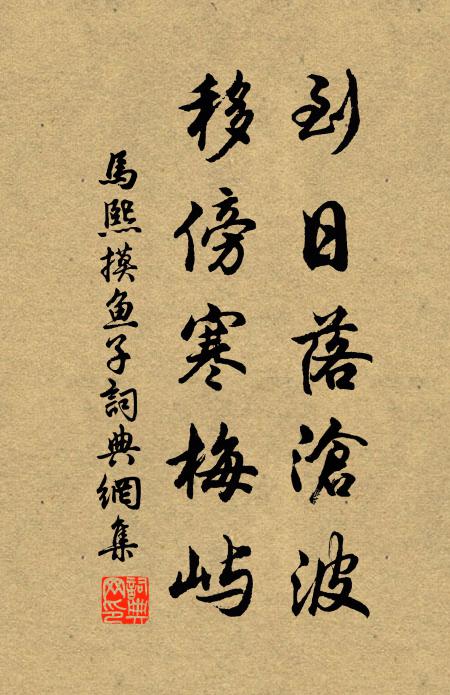 到日落滄波
移傍寒梅屿
馬熙摸鱼子詞典網集
詞典网印